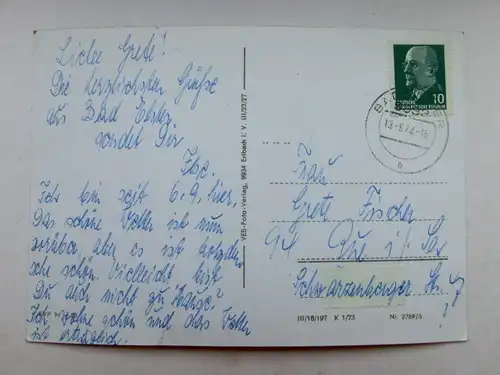 Liebe Grete!
Die herzlichsten Grüße
aus Bad Elster
sendet Dir
Ilse.
Ich bin seit 6.9. hier.
Das schöne Wetter ist nun
vorüber aber es ist trotzdem
sehr schön. Vielleicht bist
Du auch nicht zu Hause?
Ich wohne schön und das Wetter
ist erträglich.
VEB-Foto-Verlag, 9934 Erlbach i. V. III/23/27
10
DEUTSCHE
DEMOKRATISCHE REPUBLIK
BAD
Frau
Grete Fischer
94 Aue i/Sa
Schwarzenberger Str. 7
III/18/197 K 1/73 Nr. 2769/6